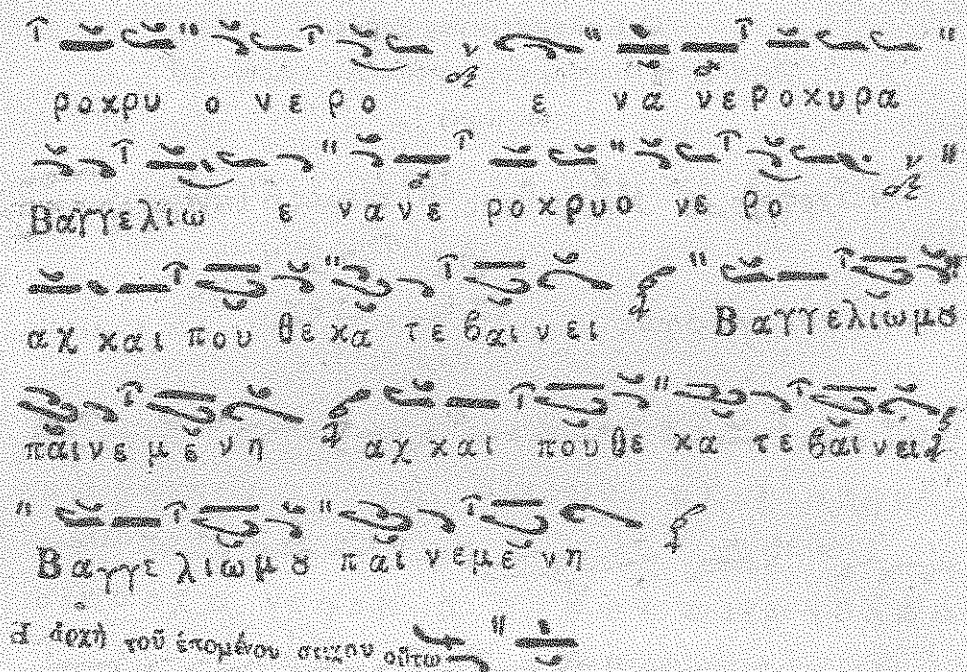 ροχρυ ο νε ρο ε να νεροχυρα
Βαγγελιω ε νανε ροχρυο νε ρο
αχ και που θε κα τε βαι νει Β αγγελιωμȣ
παινε με νη αχ και πουθε κα τε βαι νει
Βαγγε λιωμȣ παι νεμε νη
ἀρχὴ τοῦ ἑπομένου στιχου οὕτω